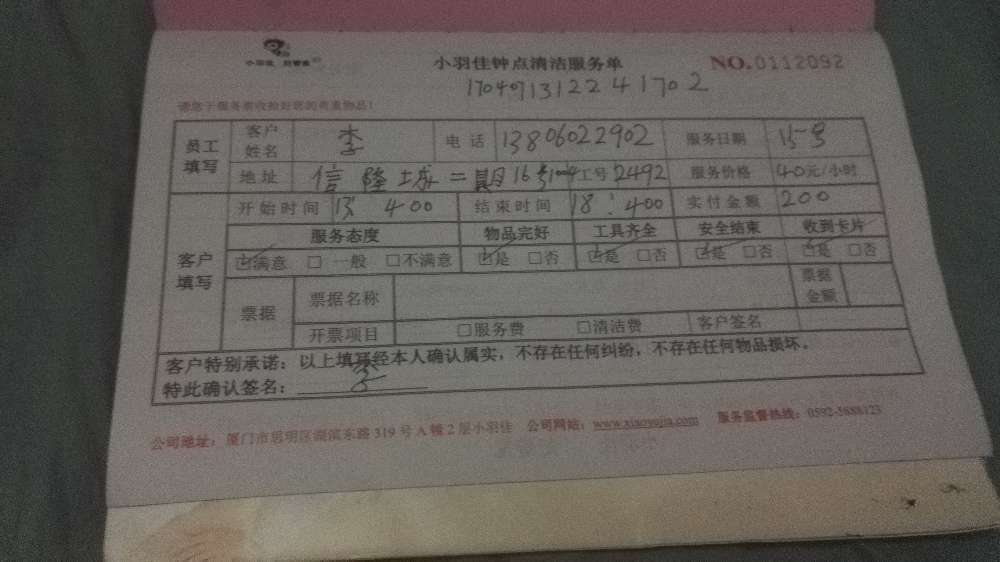 小羽佳 好管家
小羽佳钟点清洁服务单 NO.0112092
17040713122441702
员工填写 客户姓名 李 电话 13806022902 服务日期 15号
地址 信隆城二期16号1004 工号 2492 服务价格 40元/小时
客户填写 开始时间 13:400 结束时间 18:400 实付金额 200
服务态度 物品完好 工具齐全 安全结束 收到卡片
☑满意 □一般 □不满意 ☑是 □否 ☑是 □否 ☑是 □否 ☑是 □否
票据 票据名称 票据金额
开票项目 □服务费 □清洁费 客户签名
客户特别承诺：以上填写经本人确认属实，不存在任何纠纷，不存在任何物品损坏。
特此确认签名：李
公司地址：厦门市思明区湖滨东路319号A幢2层小羽佳 公司网站：www.xiaoyujia.com 服务监督热线：0592-5888123